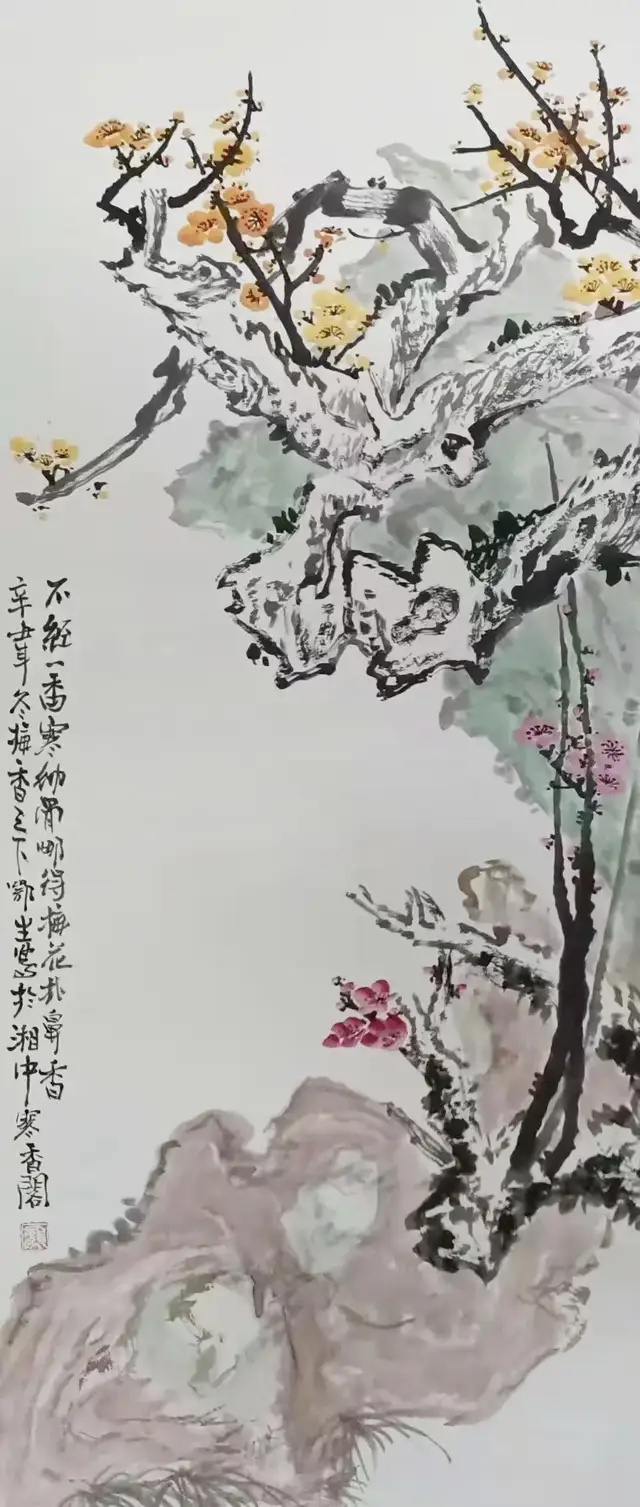 不經一番寒彻骨哪得梅花扑鼻香
辛丑年冬梅香之下鄂生寫於湘中寒香閣